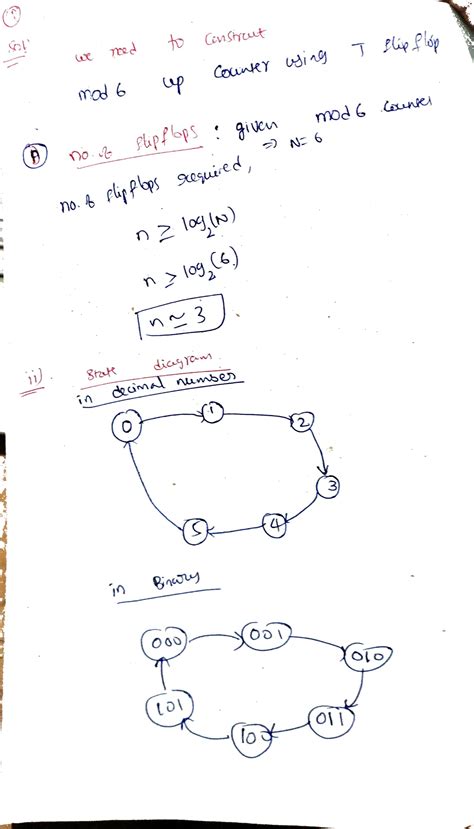 Sol:
we need to construct
mod 6 up counter using T flip flop
no. of flipflops : given mod 6 counter
⇒ N=6
no. of flipflops required,
n ≥ log₂(N)
n ≥ log₂(6)
n ≃ 3
ii) State diagram
in decimal number
0 1 2
3
5 4
in Binary
000 001
010
101
100 011